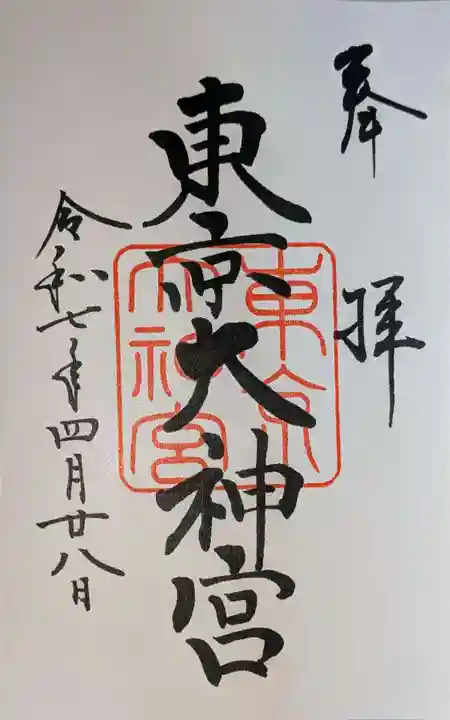 奉拝
東京大神宮
東京大神宮
令和七年四月廿八日